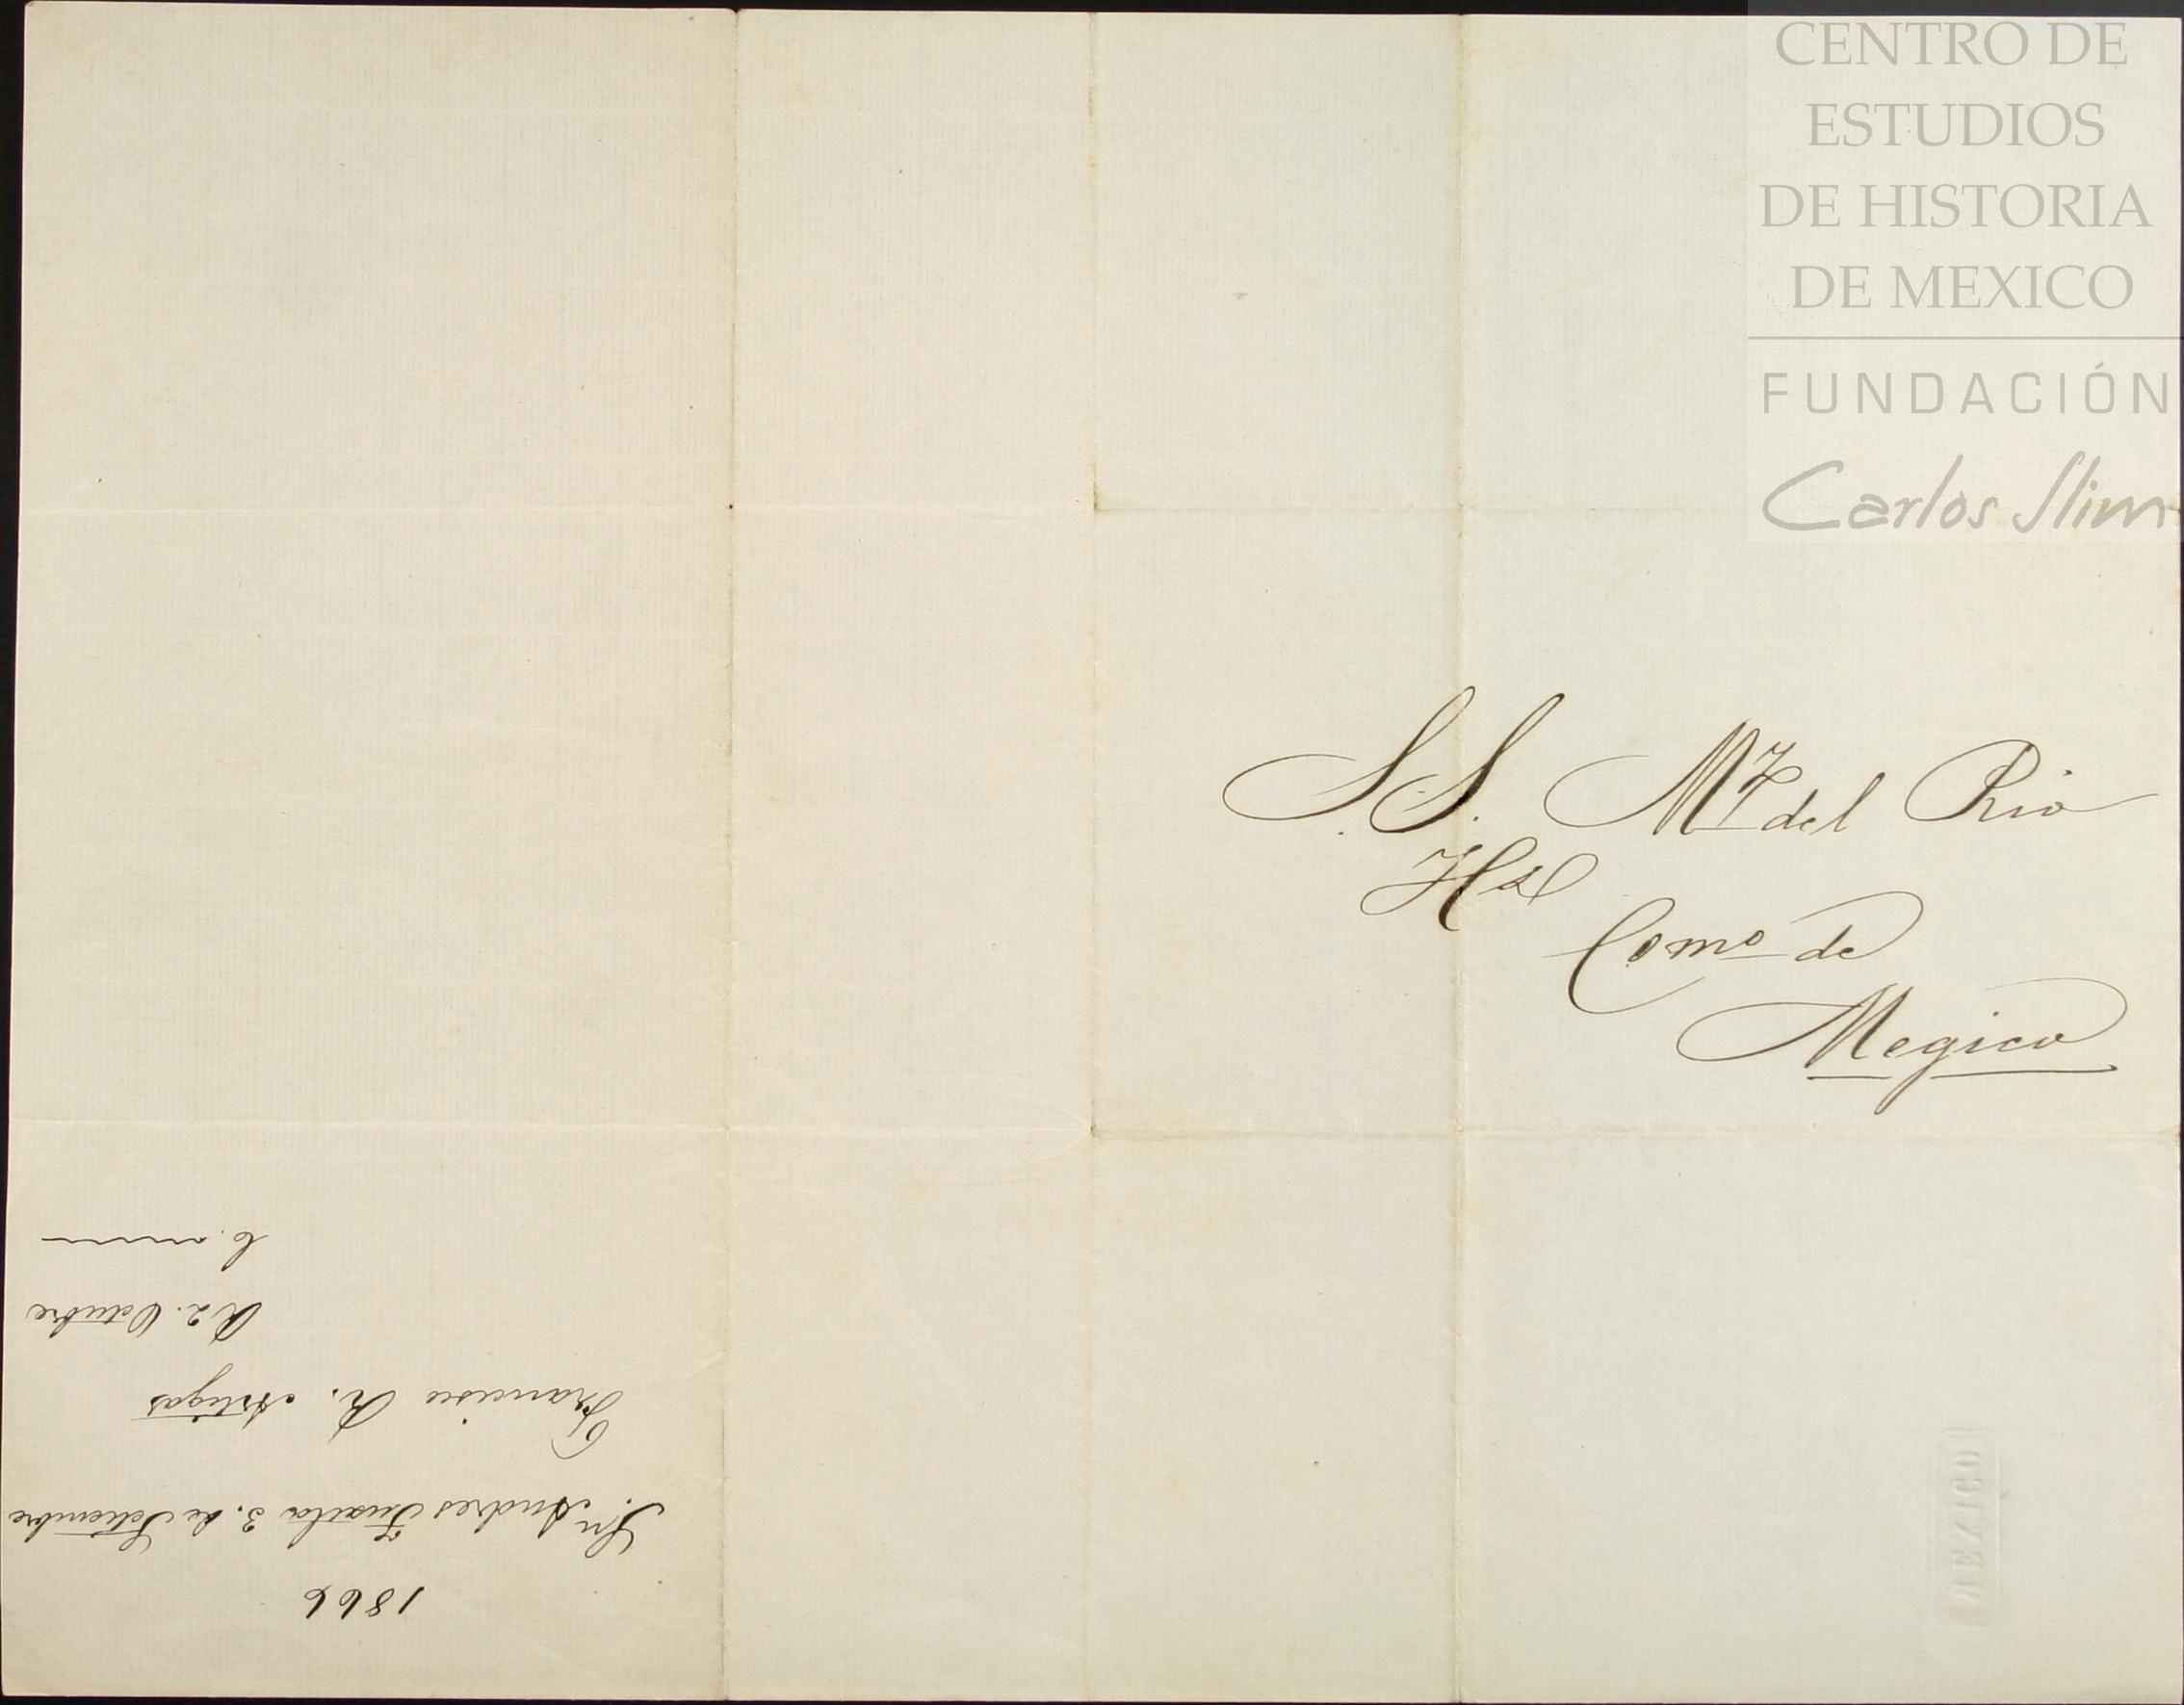 CENTRO DE
ESTUDIOS
DE HISTORIA
DE MEXICO
FUNDACIÓN
Carlos Slim
S.S. Mz del Rio
Hs
Como de
Megico
1866
Sn Andres Tuxtla 3. de Setiembre
Francisco R. Artigas
R 2. Octubre
C.
MEXICO